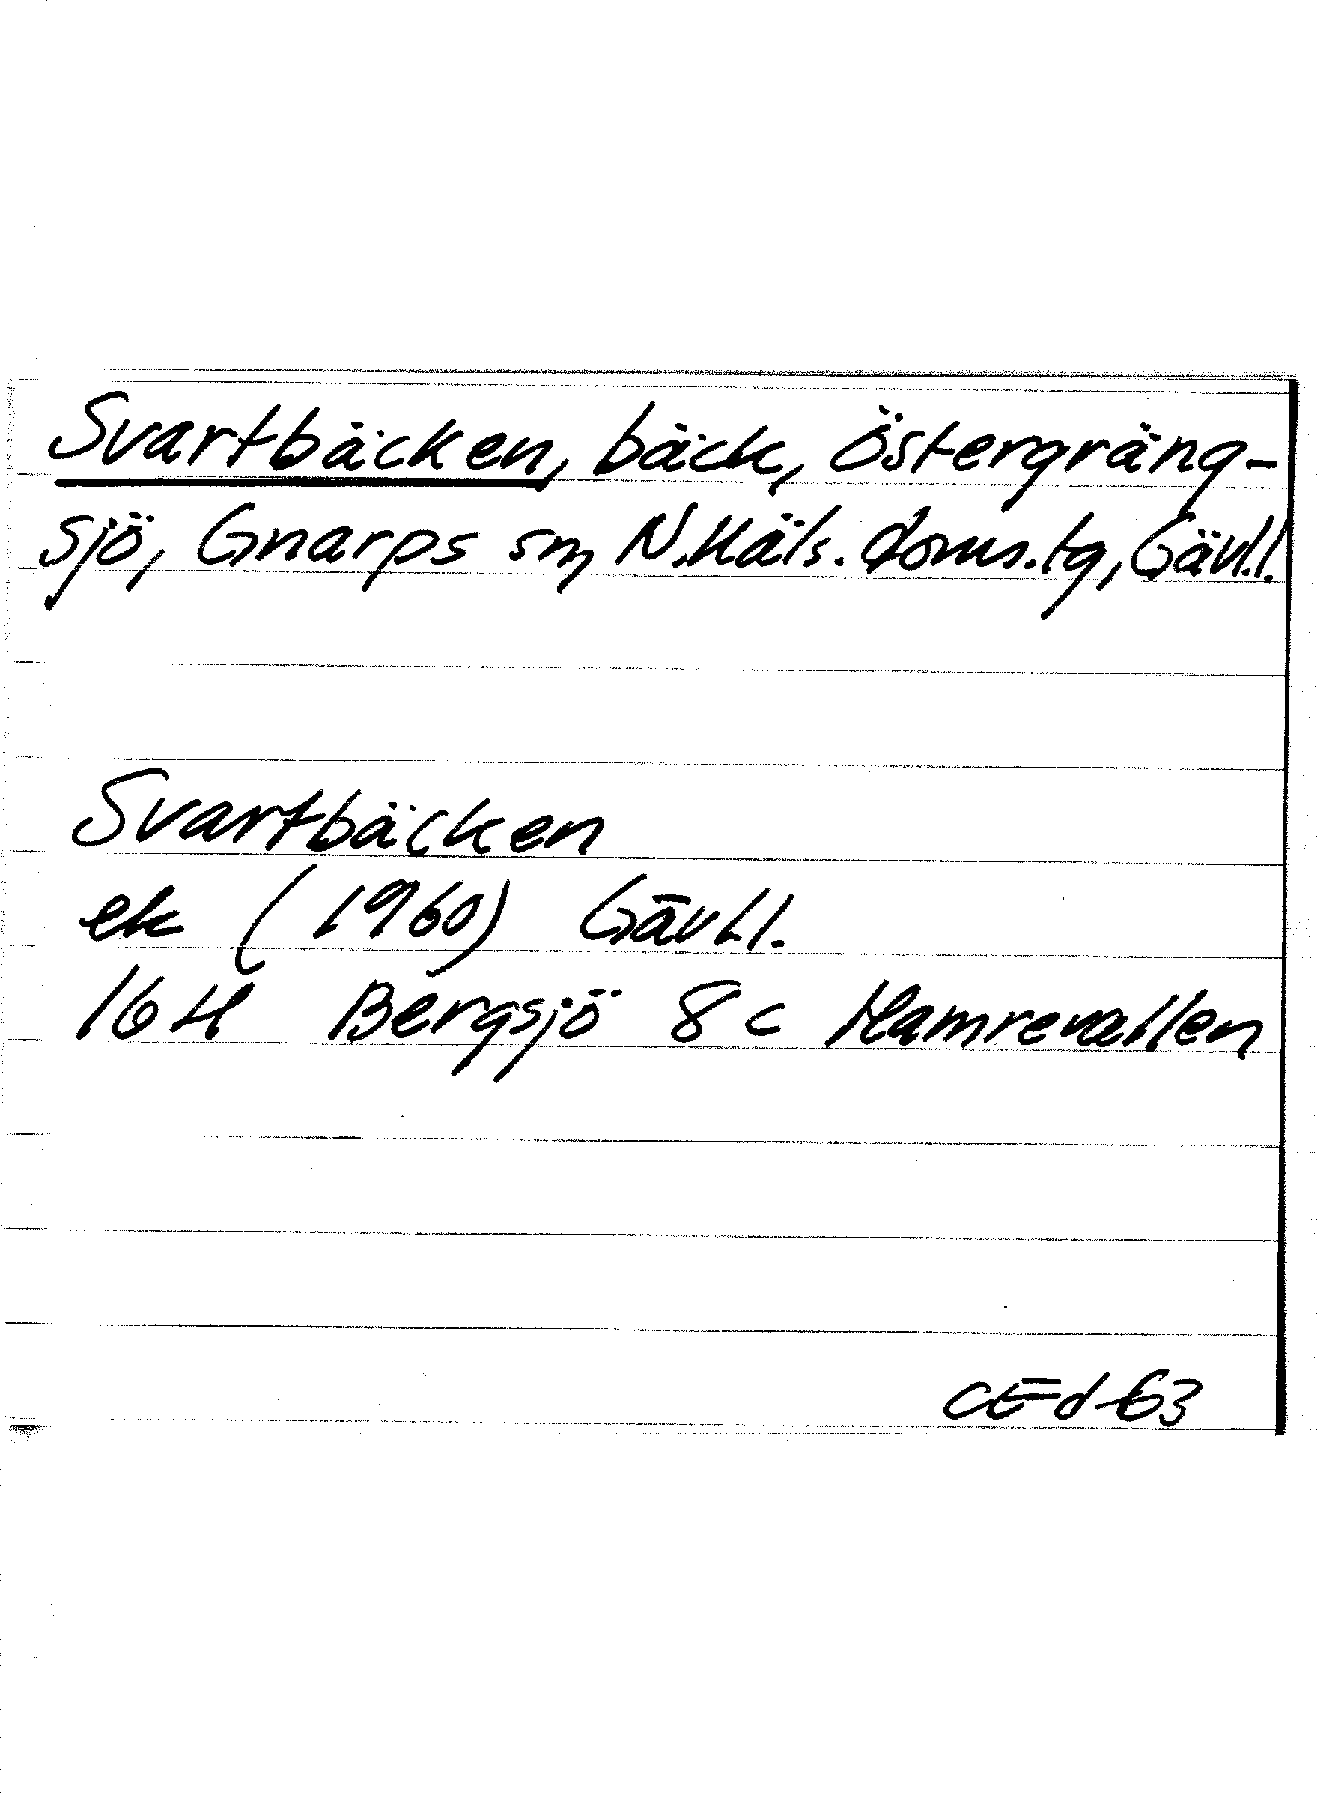 Svartbäcken, bäck, Östergräng-
sjö, Gnarps sn, N.Häls. doms.tg, Gävl.l.
Svartbäcken
ek (1960) Gävl.l.
16 H Bergsjö 8 c Hamrevallen
CEd-63